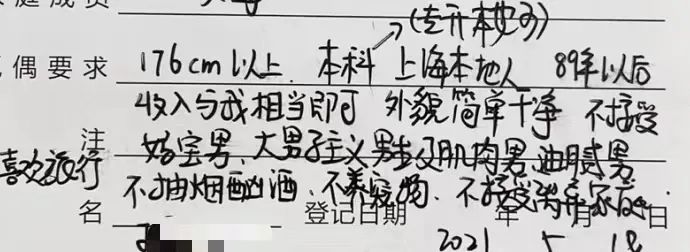 (专升本也可)
偶要求 176cm以上 本科 上海本地人 89年以后
收入与我相当即可 外貌简单干净 不接受
注 妈宝男、大男子主义男生及肌肉男、油腻男
喜欢旅行 不抽烟酗酒、不养宠物、不接受离异家庭
名 登记日期 年 月 日
2021 5 18